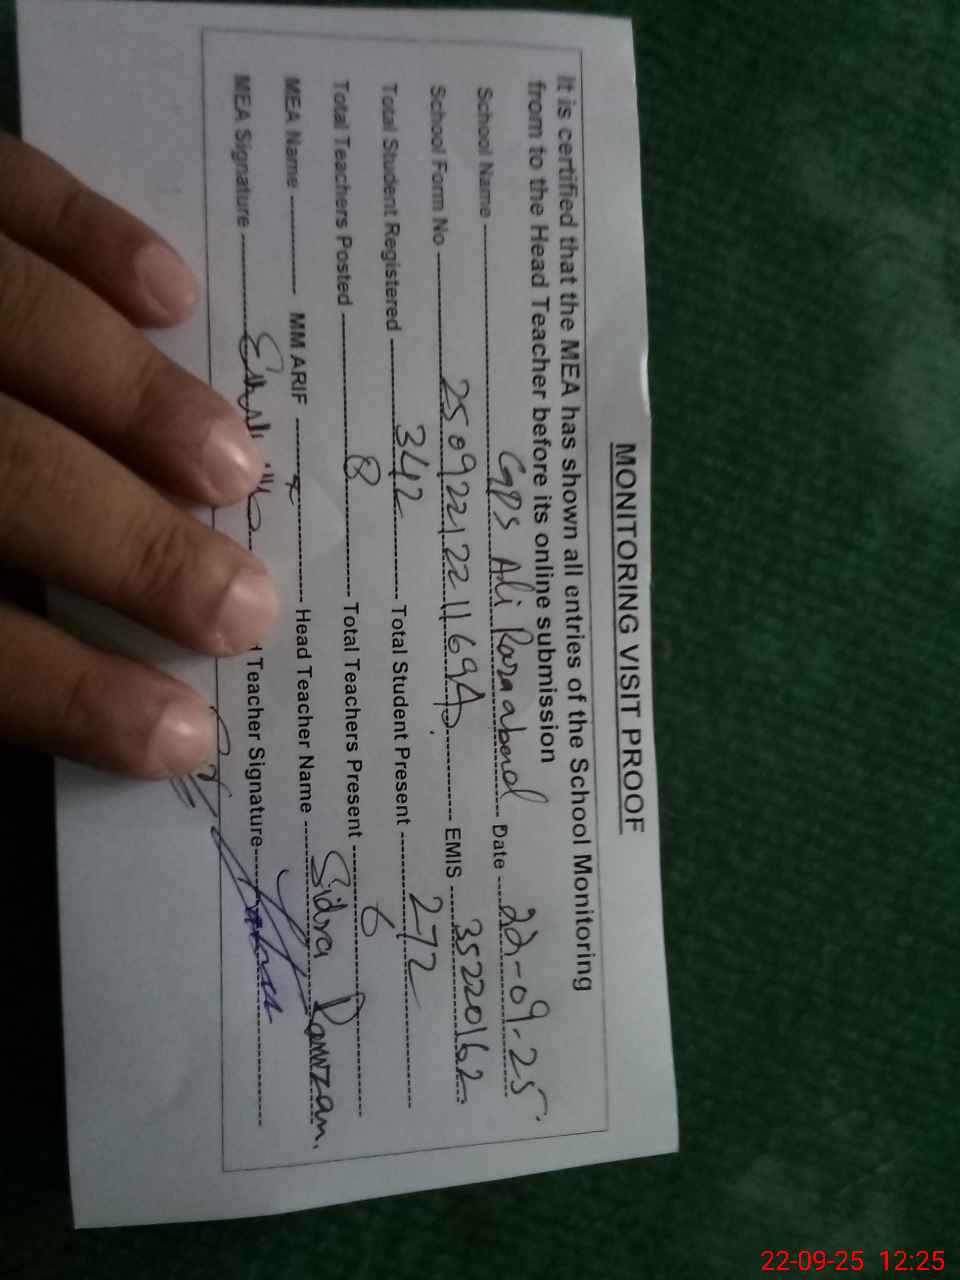 MONITORING VISIT PROOF
It is certified that the MEA has shown all entries of the School Monitoring
from to the Head Teacher before its online submission
School Name GPS Ali Razaabad Date 22-09-25
School Form No 250922122116945 EMIS 35220162
Total Student Registered 342 Total Student Present 272
Total Teachers Posted 8 Total Teachers Present 6
MEA Name MM ARIF Head Teacher Name Sidra Ramzan.
MEA Signature Teacher Signature
22-09-25 12:25